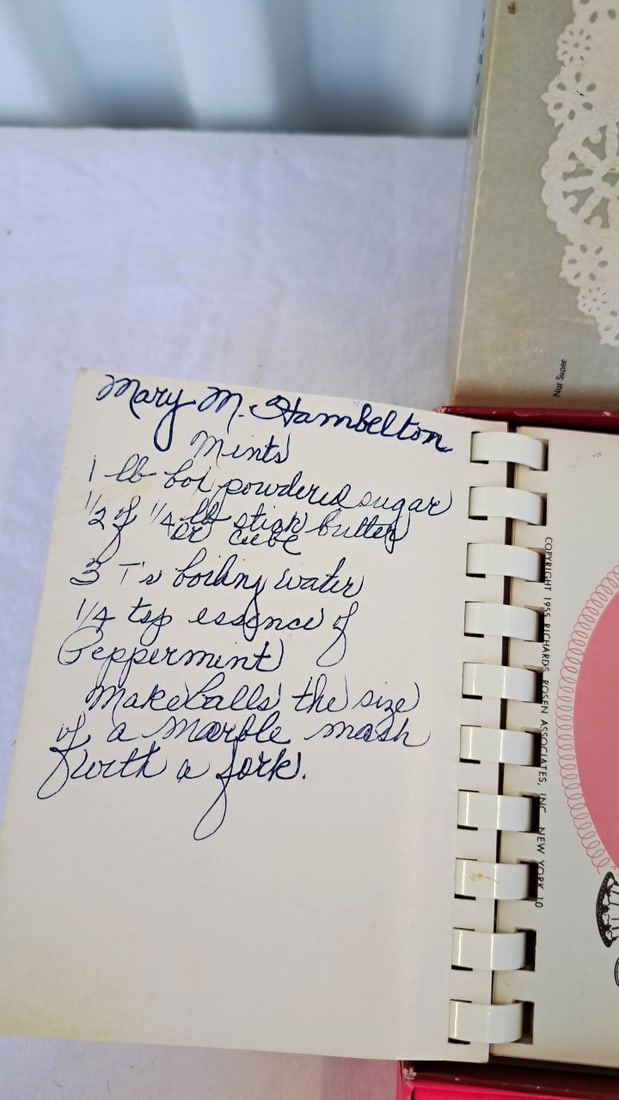 Mary M. Hambelton
Mints
1 lb box powdered sugar
1/2 of 1/4 lb stick butter
or cube
3 T's boiling water
1/4 tsp essence of
Peppermint
Make balls the size
of a marble mash
with a fork.
Not Super
COPYRIGHT 1955 RICHARDS ROSEN ASSOCIATES, INC. NEW YORK 10